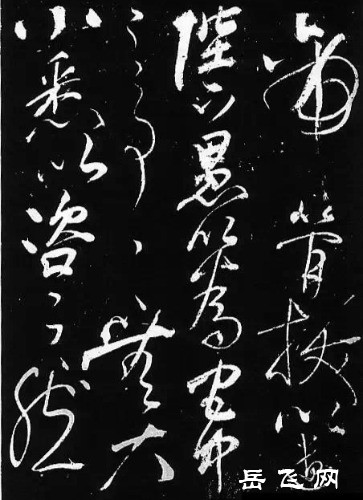 帝簡拔以遺
陛下愚以為宮中
之事々無大
小悉以咨之然
岳飞网